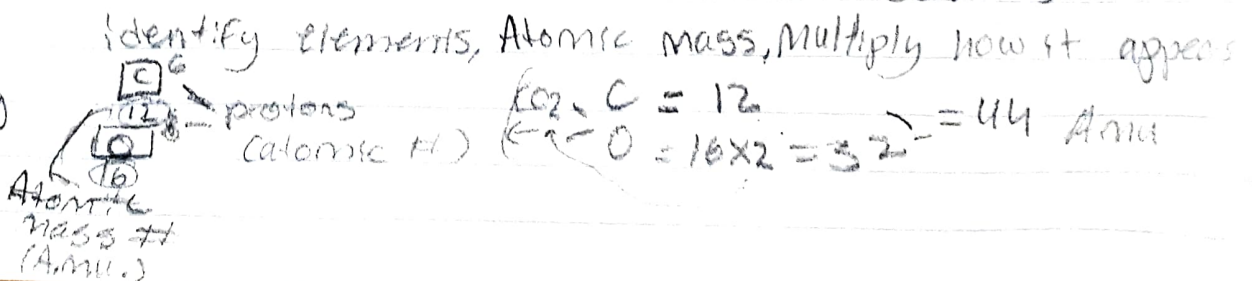 identify elements, Atomic mass, Multiply how it appears
C 6
12 8 - protons
O (atomic #)
16
Atomic
mass #
(A.mu.)
CO2 C = 12
O = 16x2 = 32 = 44 Amu